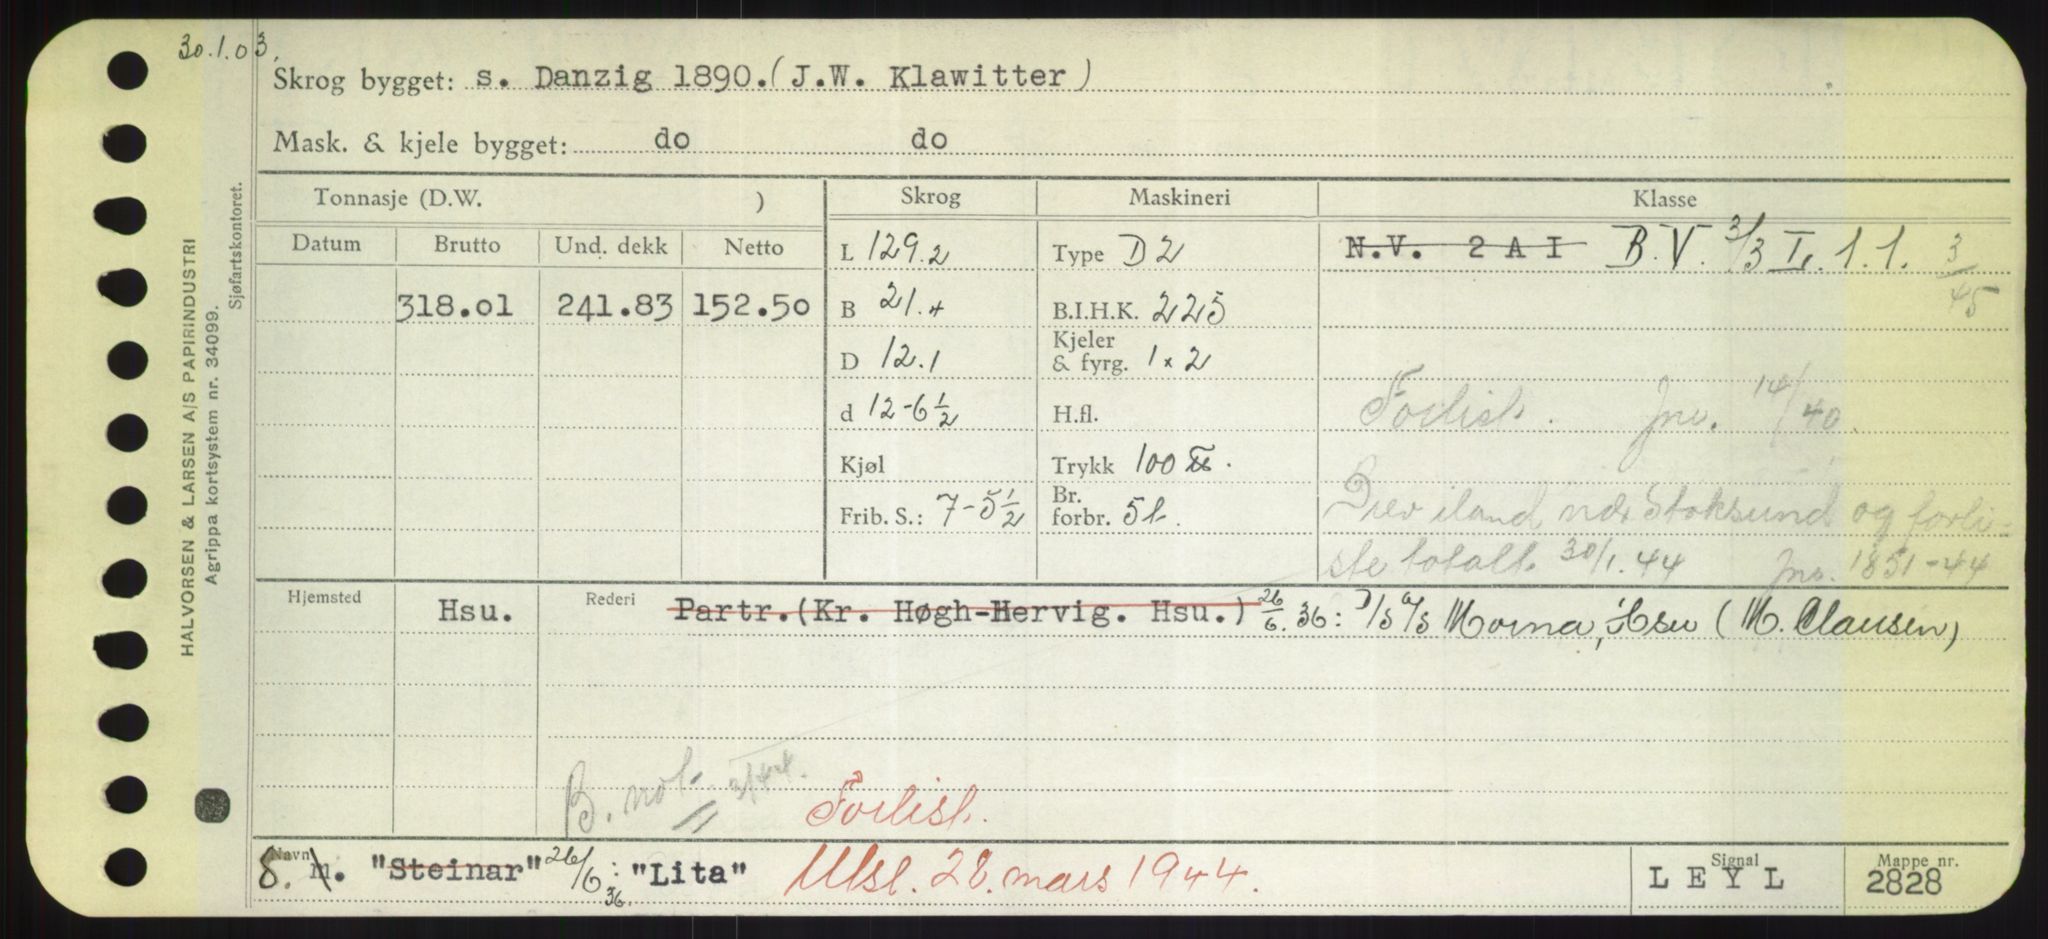 30.1.03.
Skrog bygget: s. Danzig 1890. (J.W. Klawitter)
Mask. & kjele bygget: do do
Tonnasje (D.W. ) Skrog Maskineri Klasse
Datum Brutto Und. dekk Netto L 129.2 Type D 2 N.V. 2 A I B.V. 3/3 I. 1.1. 3/45
318.01 241.83 152.50 B 21.4 B.I.H.K. 225
D 12.1 Kjeler & fyrg. 1 x 2
d 12-6 1/2 H.fl. Forlist. Jno. 14/40.
Kjøl Trykk 100 lb.
Frib. S.: 7-5 1/2 Br. forbr. 5 t. Drev iland nær Stoksund og forli-
ste totalt. 30/1.44 Jno. 1851-44
Hjemsted Hsu. Rederi Partr.(Kr. Høgh-Hervig. Hsu.) 26/6. 36: D/S A/S Morna, Hsu (M. Clausen)
B. not. 3/44.
Forlist.
Navn 8. m. "Steinar" 26/6 36: "Lita" Utsl. 28. mars 1944. Signal L E Y L Mappe nr. 2828
HALVORSEN & LARSEN A/S PAPIRINDUSTRI
Agrippa kortsystem nr. 34099.
Sjøfartskontoret.